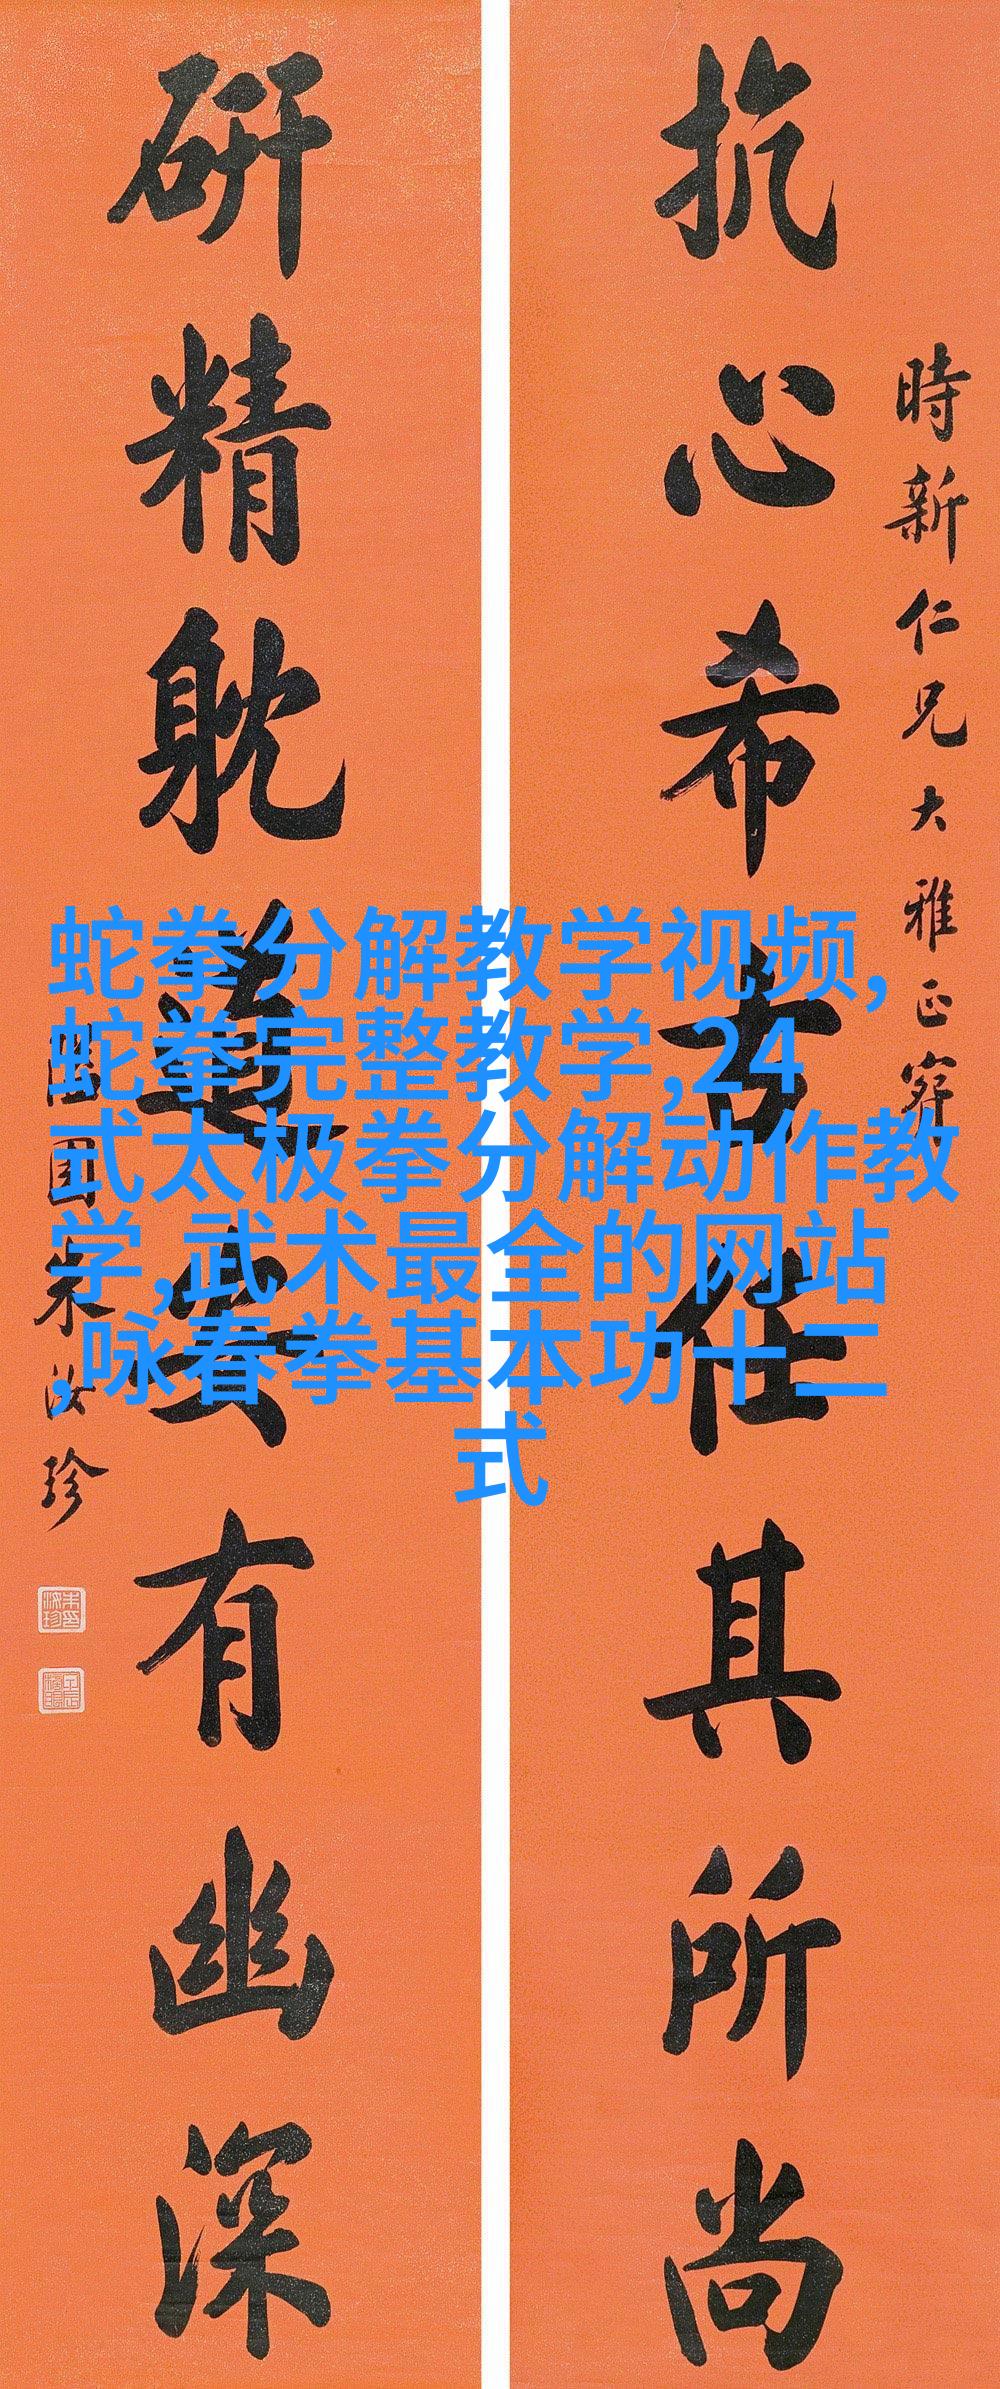 抗心希古任其所尚
時新仁兄大雅正
研精躭道安有幽深
園朱汝珍
蛇拳分解教学视频,
蛇拳完整教学,24
式太极拳分解动作教
学,武术最全的网站
,咏春拳基本功十二
式